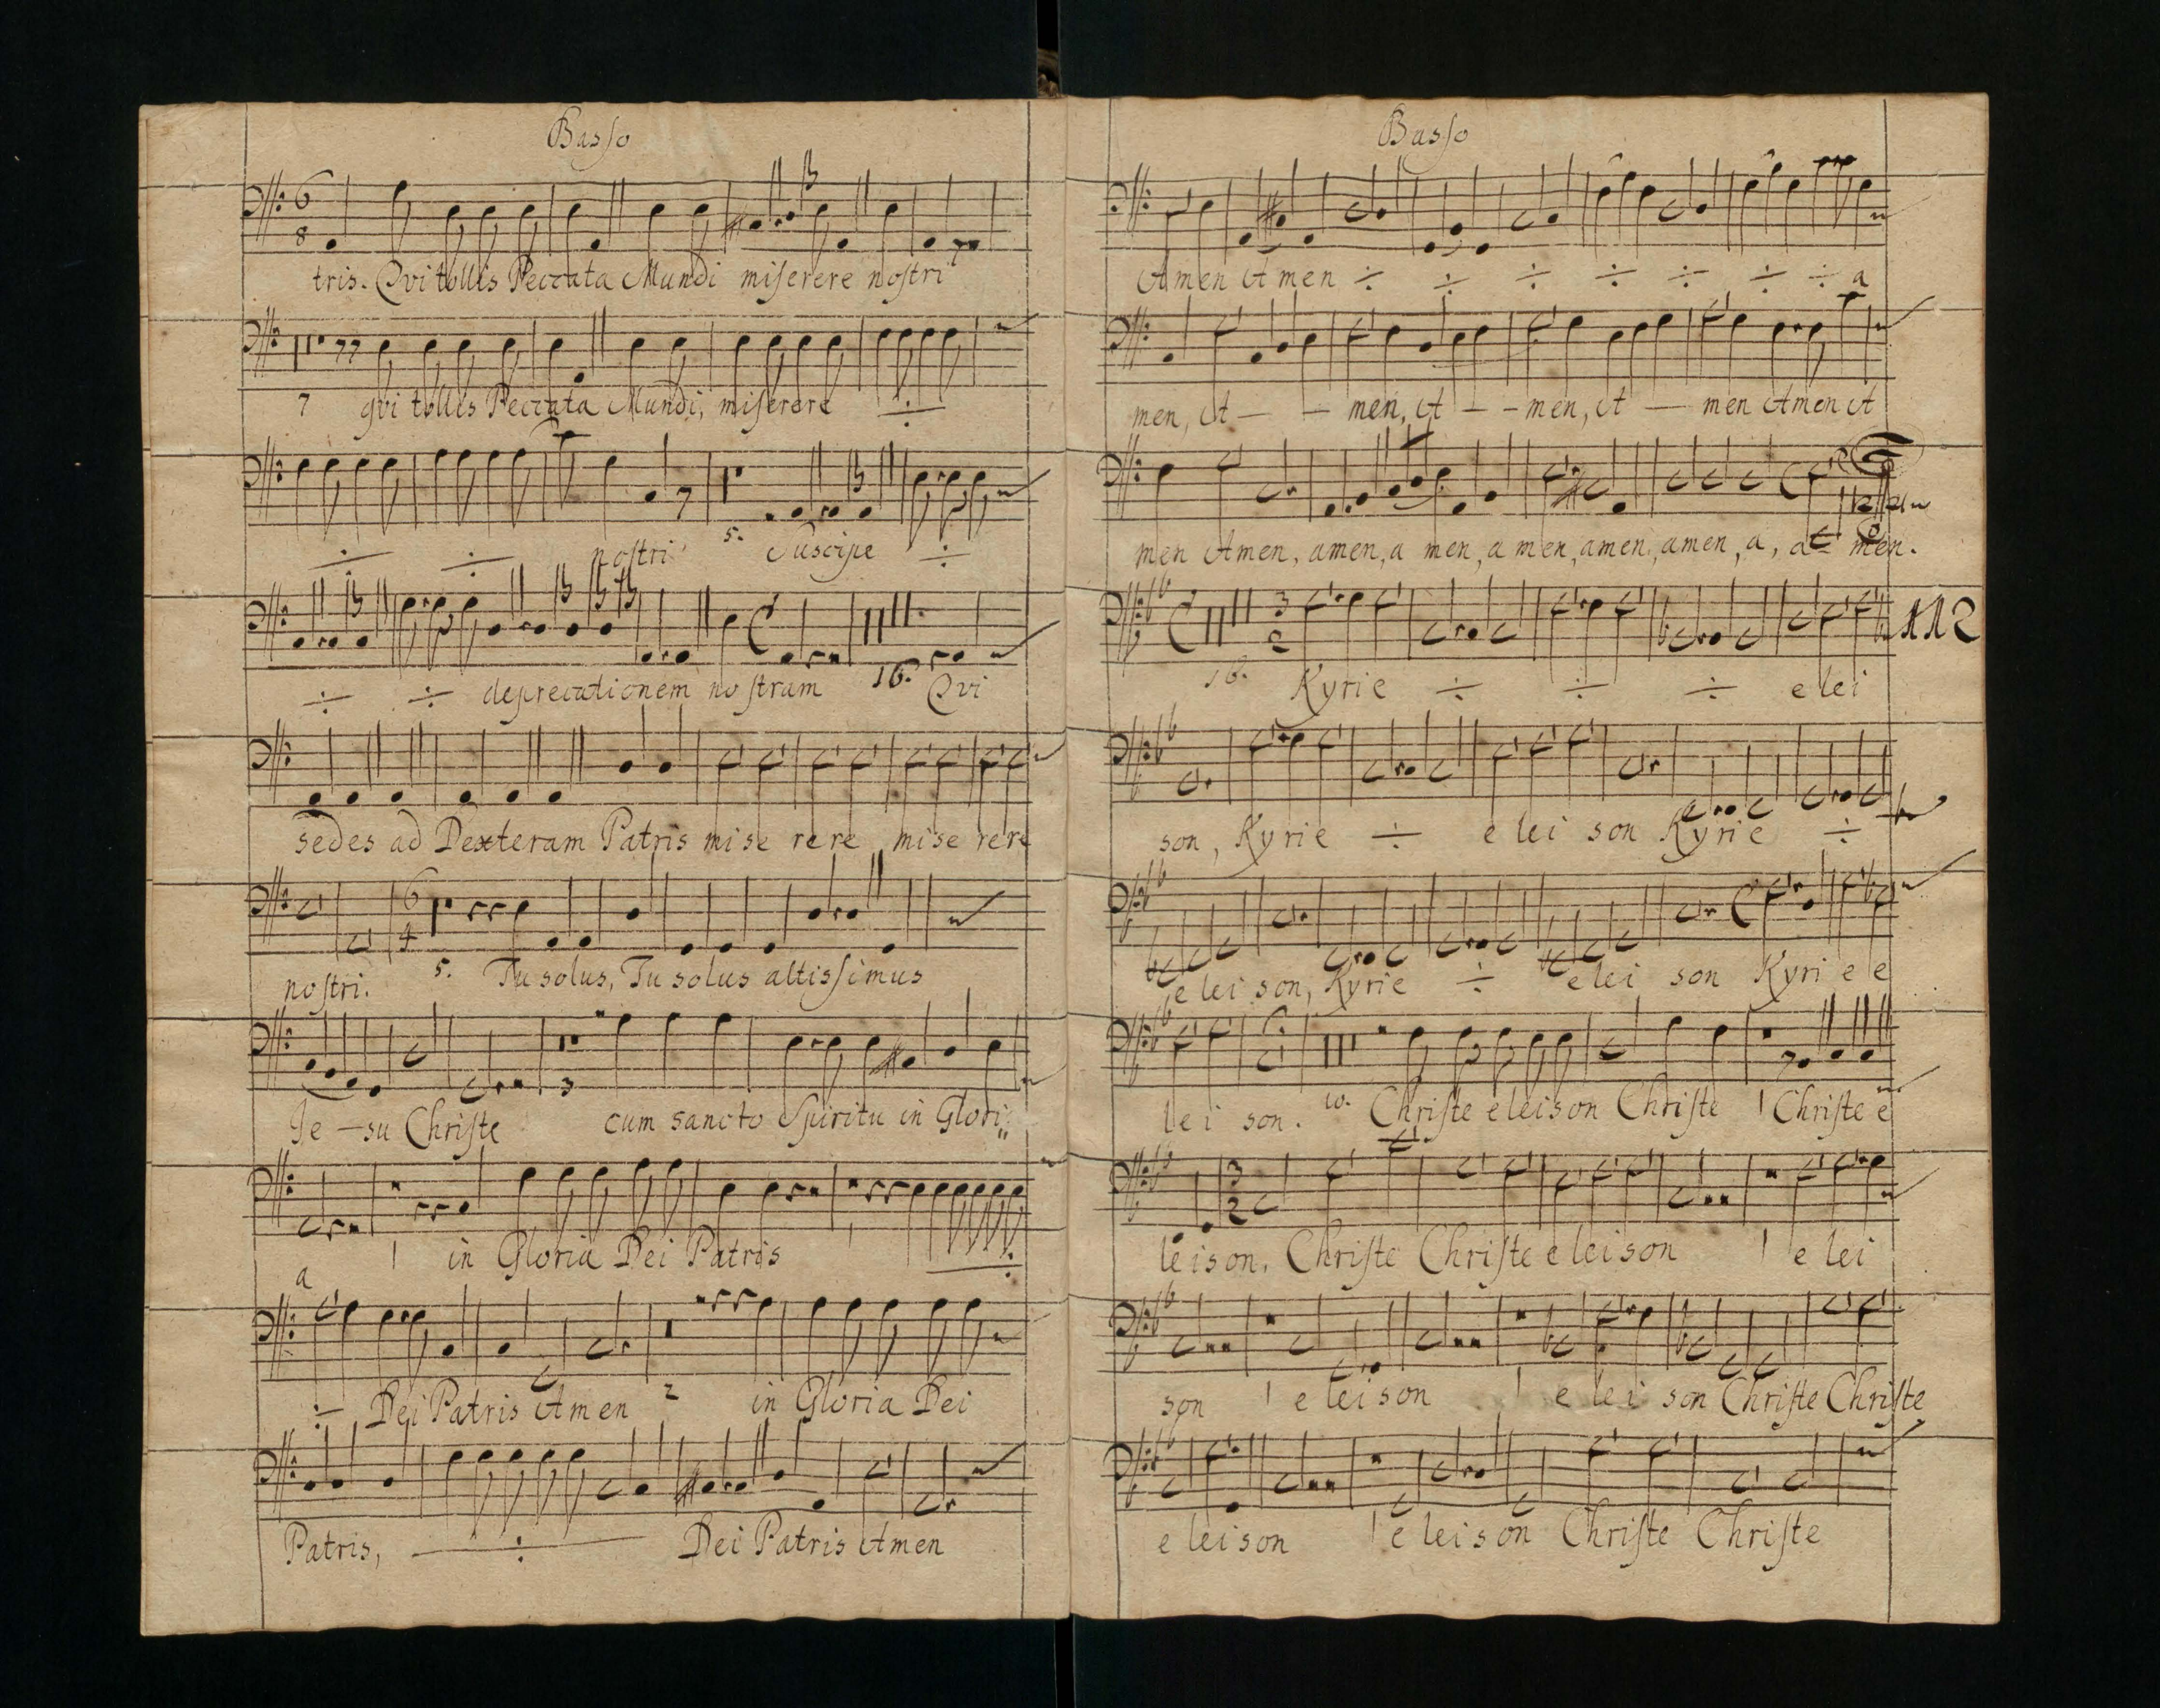 Basso
6
8
tris. Qvi tollis Peccata Mundi miserere nostri
7 qvi tollis Peccata Mundi, miserere ÷
÷ ÷ nostri 5. Suscipe ÷
÷ ÷ deprecationem nostram 16. Qvi
sedes ad Dexteram Patris mise rere mise rere
6
4
nostri. 5. Tu solus, Tu solus altissimus
Je - su Christe 3 cum sancto Spiritu in Glori,,
a 1 in Gloria Dei Patris 1 ÷
÷ Dei Patris Amen 2 in Gloria Dei
Patris, ÷ Dei Patris Amen
Basso
Amen Amen ÷ ÷ ÷ ÷ ÷ ÷ ÷ a
men, A - - men, A - - men, A - men Amen A
men Amen, amen, a men, a men, amen, amen, a, a- men.
3
2
112
16. Kyrie ÷ ÷ ÷ e lei
son, Kyrie ÷ e lei son Kyrie ÷
e lei son, Kyrie ÷ e lei son Kyri e e
lei son. 10. Christe eleison Christe 1 Christe e
3
2
leison. Christe Christe e leison 1 e lei
son 1 e leison 1 e lei son Christe Christe
e leison 1 e leison Christe Christe